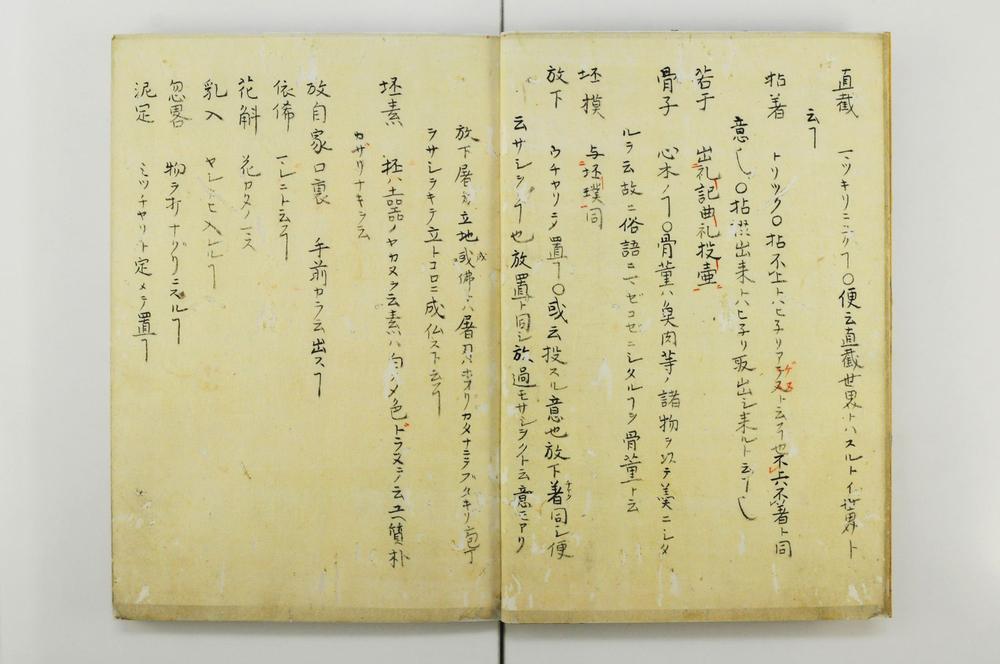 直截 マツキリニスルヿ〇便云直截世界トハスルトイ世界ト
云ヿ
拈著 トリツク〇拈不上トハヒ子リアゲヌト云ヿ也不上不著ト同
意〇拈掇出来トハヒ子リ取出シ来ルト云ヿ
若于 出礼記曲礼投壷
骨子 心木ノヿ〇骨董ハ魚肉等ノ諸物ヲ以テ羮ニシタ
ルヲ云故ニ俗語ニマゼコゼニシタルヿヲ骨董ト云
坯模 与坯璞同
放下 ウチヤリテ置ヿ〇或云投スル意也放下著同シ便
云サシヲクヿ也放置ト同シ放過モサシヲクト云意モアリ
放下屠刀立地成佛トハ屠刀ハホフリカタナニテブタキリ庖丁
ヲサシヲキテ立トコロニ成仏スト云ヿ
坯素 坯ハ土器ノヤカヌヲ云素ハ白グメ色ドラヌヲ云ユヘ質朴
カザリナキヲ云
放自家口裏 手前カラ云出スヿ
依俙 マシニト云ヿ
花斛 花カタノマス
乳入 ヤシトヒ入レルヿ
忽畧 物ヲオナグリニスルヿ
泥定 ミツチヤリト定メテ置ヿ